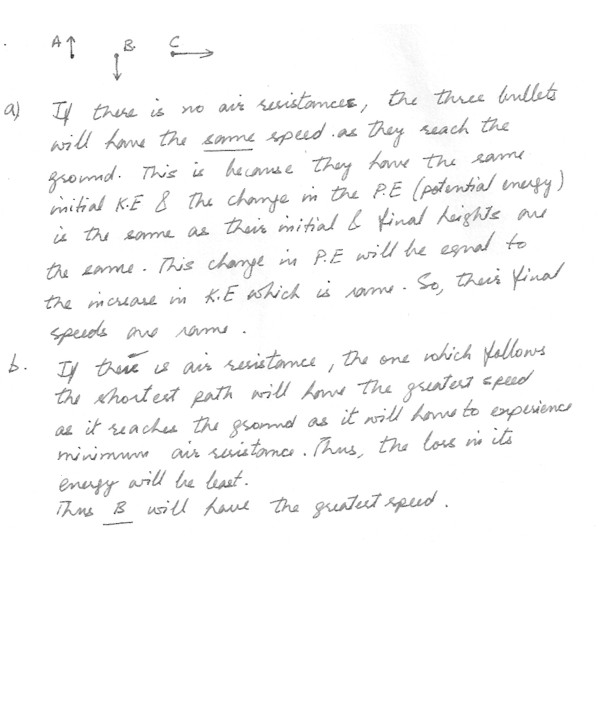 A B C
a) If there is no air resistances, the three bullets
will have the same speed as they reach the
ground. This is because they have the same
initial K.E & the change in the P.E (potential energy)
is the same as their initial & final heights are
the same. This change in P.E will be equal to
the increase in K.E which is same. So, their final
speeds are same.
b. If there is air resistance, the one which follows
the shortest path will have the greatest speed
as it reaches the ground as it will have to experience
minimum air resistance. Thus, the loss in its
energy will be least.
Thus B will have the greatest speed.